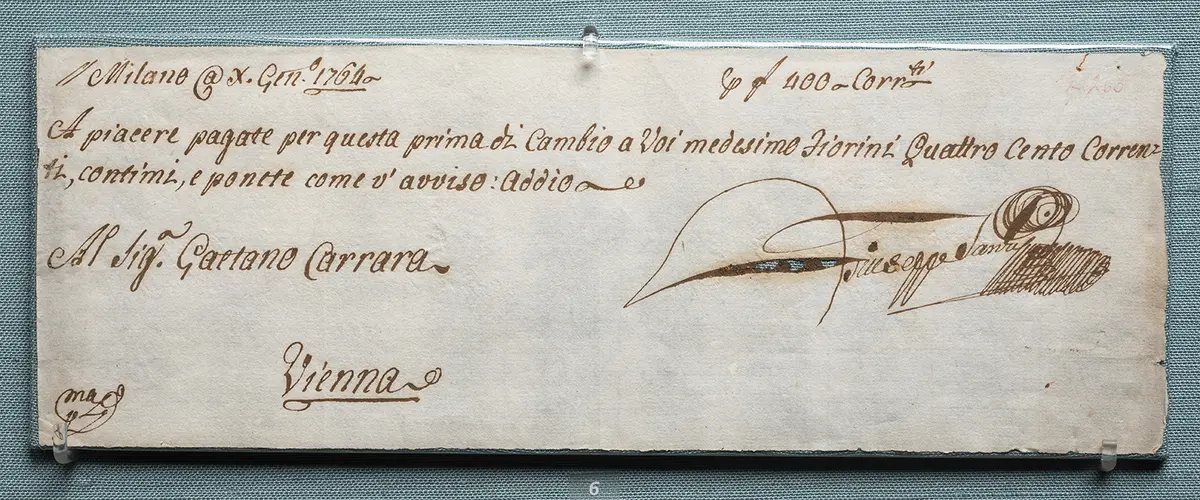 Milano @ X. Gen.º 1764
p f 400 Corr.ti
A piacere pagate per questa prima di Cambio a Voi medesimo Fiorini Quattro Cento Corren=
ti, contimi, e ponete come v' avviso: Addio
Al Sig.r Gaetano Carrara
Giuseppe
Vienna
ma
p
6